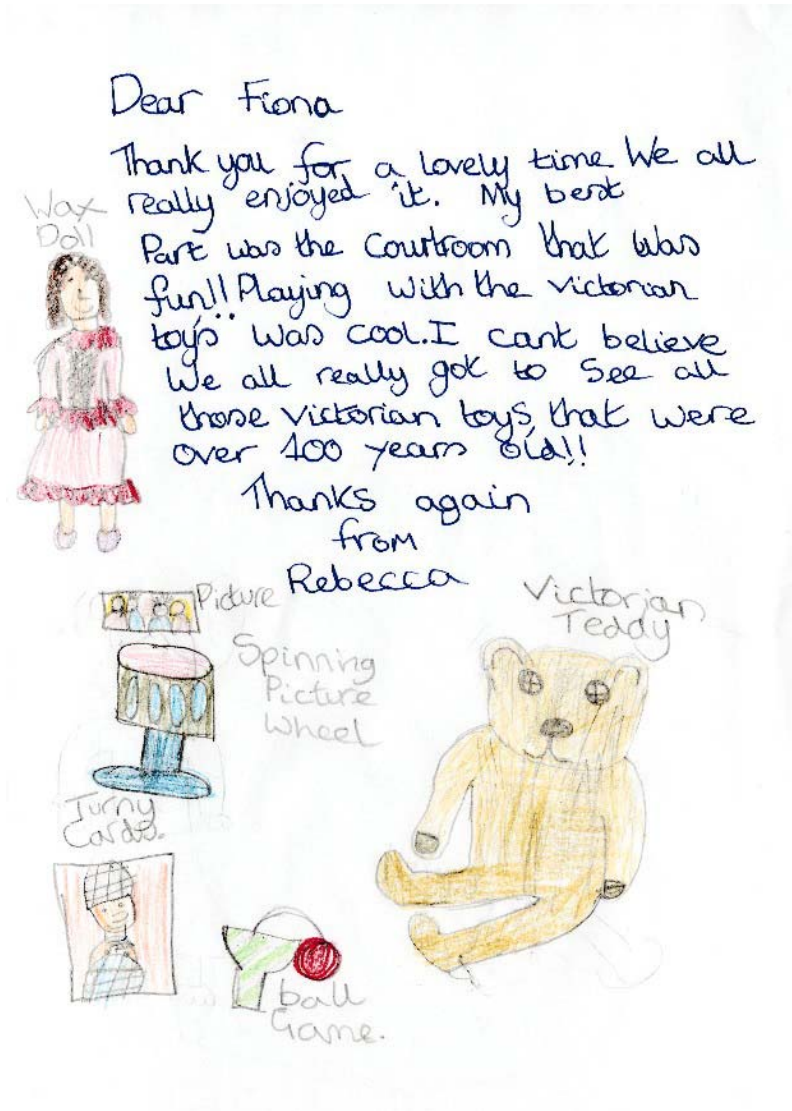 Dear Fiona
Thank you for a lovely time We all
really enjoyed it. My best
Part was the Courtroom that was
fun!! Playing with the victorian
toys was cool. I cant believe
We all really got to See all
those victorian toys, that were
over 100 years old!!
Thanks again
from
Rebecca
Wax
Doll
Picture
Spinning
Picture
Wheel
Victorian
Teddy
Turny
Cards.
ball
Game.